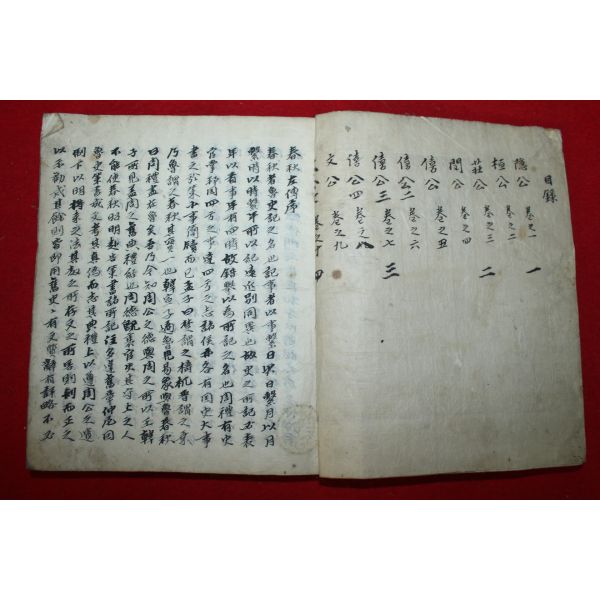 目錄
隱公 卷之一 一
桓公 卷之二
莊公 卷之三 二
閔公 卷之四
僖公 卷之五
僖公二 卷之六
僖公三 卷之七 三
僖公四 卷之八
文公 卷之九
卷之十 四
春秋左傳序
春秋者魯史記之名也記事者以事繫日以日繫月以月
繫時以時繫年所以記遠近別同異也故史之所記必表
年以首事年有四時故錯擧以為所記之名也周禮有史
官掌邦国四方之事達四方之志諸侯亦各有国史大事
書之於策小事簡牘而已孟子曰楚謂之檮杌晉謂之乘
乃魯謂之春秋其實一也韓宣子適魯見易象與魯春秋
曰周禮盡在魯矣吾乃今知周公之德與周之所以王韓
子所見盖周之舊典禮經也周德旣衰官失其守上之人
不能使春秋昭明赴告策書諸所記注多違舊章仲尼因
魯史策書成文考其真偽而志其典禮上以遵周公之遺
制下以明將来之法其教之所存文之所害則刊而正之
以示勸戒其餘則皆即用舊史〻有文質辭有詳略不必